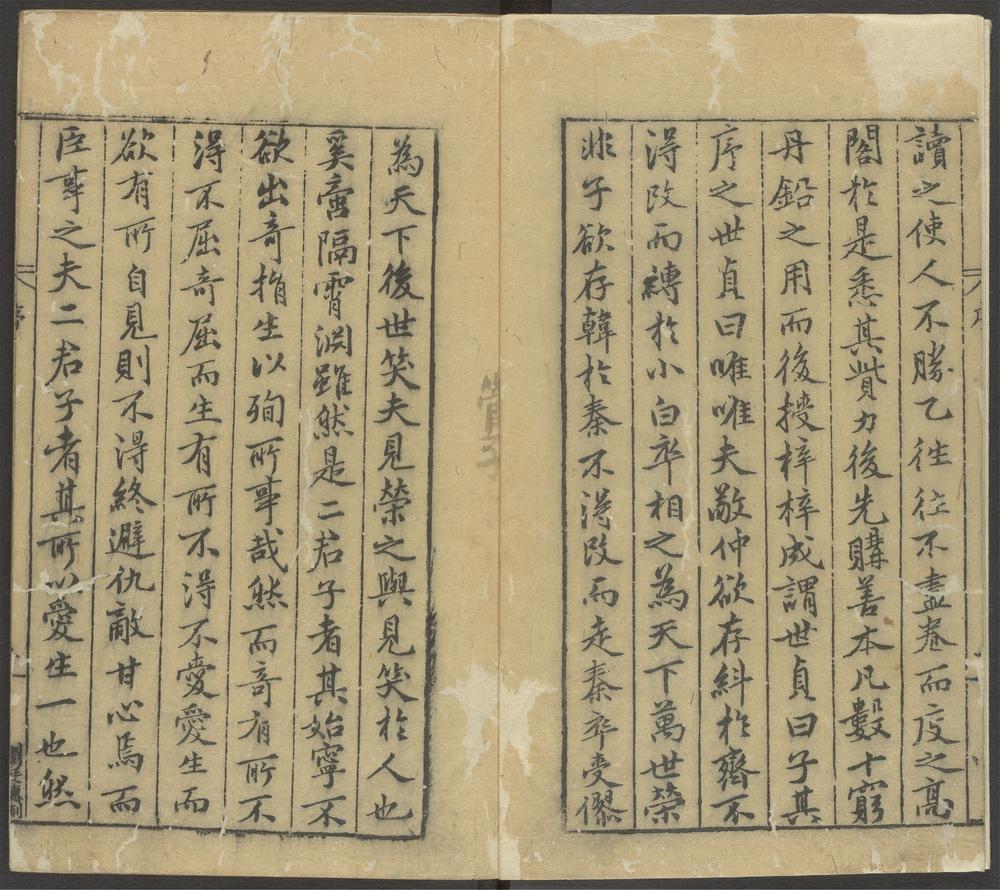 讀之使人不勝乙往往不盡卷而度之髙
閣於是悉其貲力後先購善本凡數十窮
丹鉛之用而後授梓梓成謂世貞曰子其
序之世貞曰唯唯夫敬仲欲存糾於齊不
淂改而縛於小白卒相之為天下萬世榮
非子欲存韓於秦不淂改而走秦卒受僇
為天下後世笑夫見榮之與見笑於人也
奚啻隔霄淵雖然是二君子者其始寧不
欲出奇捐生以殉所事哉然而奇有所不
淂不屈奇屈而生有所不淂不愛愛生而
欲有所自見則不淂終避仇敵甘心焉而
臣事之夫二君子者其所以愛生一也然
序